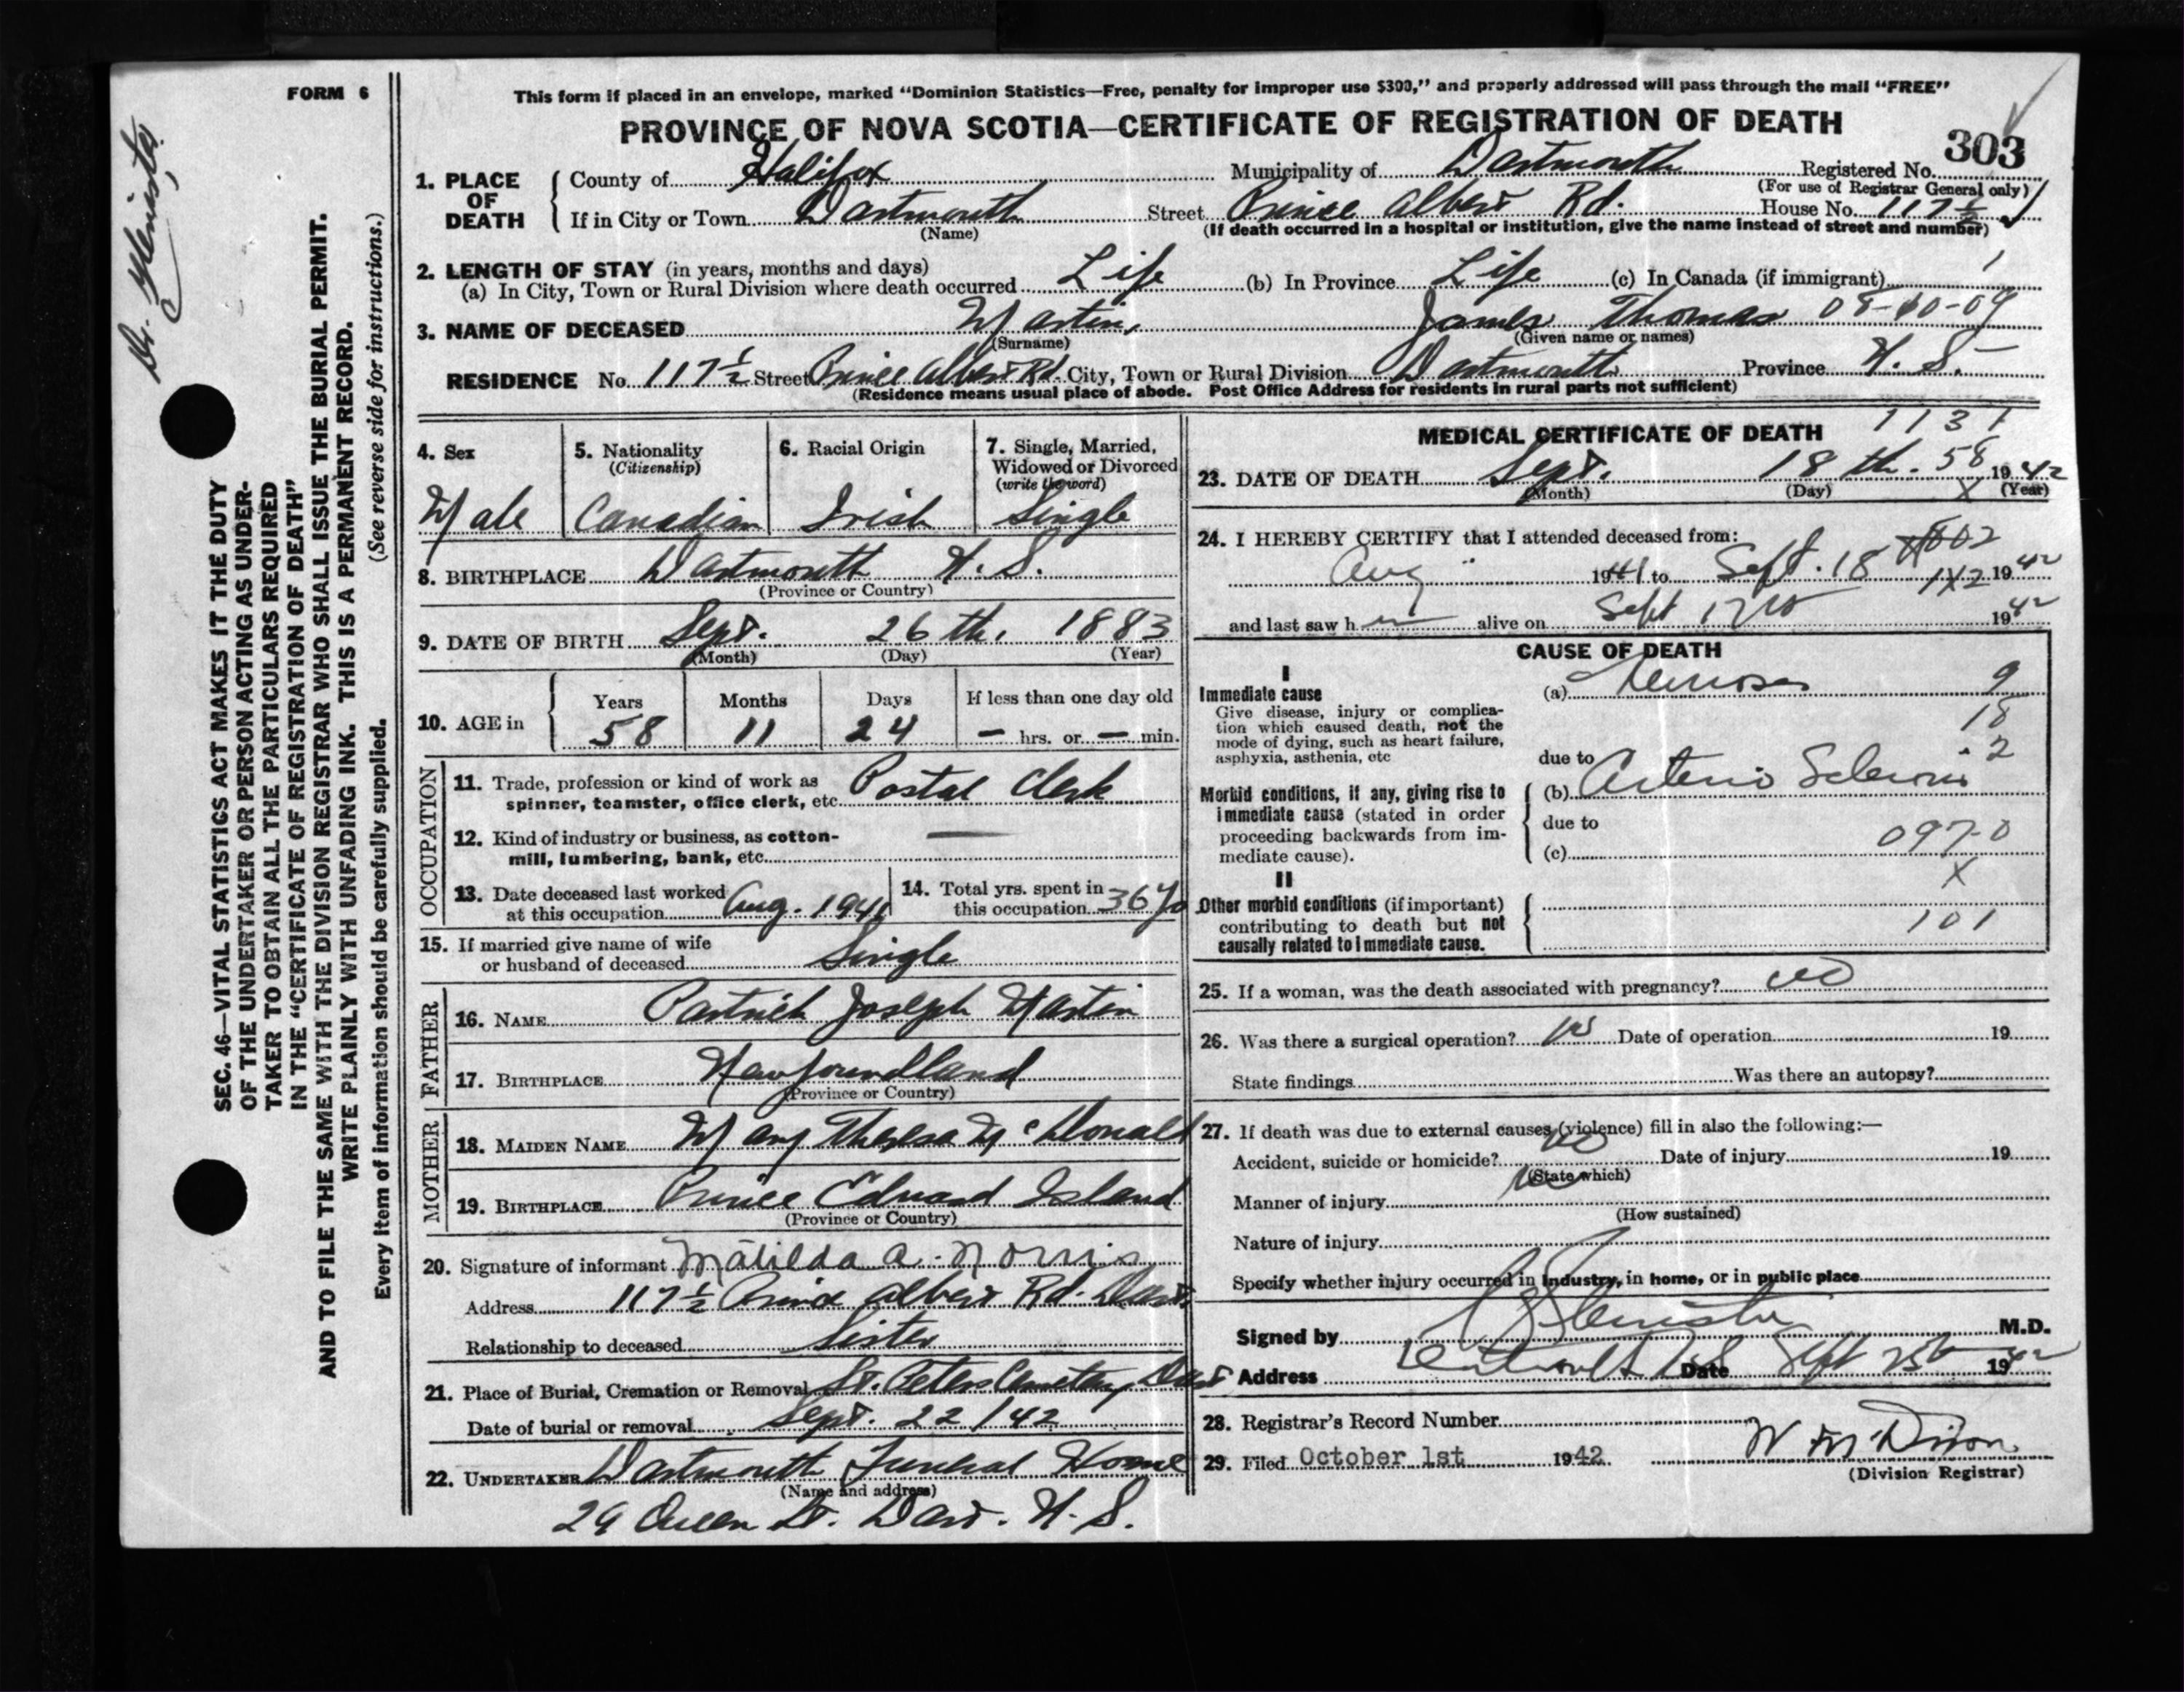 FORM 6
This form if placed in an envelope, marked "Dominion Statistics—Free, penalty for improper use $300," and properly addressed will pass through the mail "FREE"
PROVINCE OF NOVA SCOTIA—CERTIFICATE OF REGISTRATION OF DEATH
303
1. PLACE OF DEATH
County of Halifax Municipality of Dartmouth Registered No.
(For use of Registrar General only)
If in City or Town Dartmouth Street Prince Albert Rd. House No. 117½
(Name) (If death occurred in a hospital or institution, give the name instead of street and number)
2. LENGTH OF STAY (in years, months and days)
(a) In City, Town or Rural Division where death occurred Life (b) In Province Life (c) In Canada (if immigrant)
3. NAME OF DECEASED Martin, James Thomas 08-10-09
(Surname) (Given name or names)
RESIDENCE No. 117½ Street Prince Albert Rd. City, Town or Rural Division Dartmouth Province N. S.
(Residence means usual place of abode. Post Office Address for residents in rural parts not sufficient)
4. Sex 5. Nationality 6. Racial Origin 7. Single, Married,
(Citizenship) Widowed or Divorced
(write the word)
Male Canadian Irish Single
8. BIRTHPLACE Dartmouth N. S.
(Province or Country)
9. DATE OF BIRTH Sept. 26th. 1883
(Month) (Day) (Year)
10. AGE in Years Months Days If less than one day old
58 11 24 — hrs. or — min.
OCCUPATION
11. Trade, profession or kind of work as spinner, teamster, office clerk, etc. Postal Clerk
12. Kind of industry or business, as cotton-
mill, lumbering, bank, etc. —
13. Date deceased last worked
at this occupation Aug. 1941
14. Total yrs. spent in
this occupation 36
15. If married give name of wife
or husband of deceased Single
FATHER
16. NAME Partrick Joseph Martin
17. BIRTHPLACE Newfoundland
(Province or Country)
MOTHER
18. MAIDEN NAME Mary Theresa McDonald
19. BIRTHPLACE Prince Edward Island
(Province or Country)
20. Signature of informant Matilda a. Norris
Address 117½ Prince Albert Rd. Dart.
Relationship to deceased Sister
21. Place of Burial, Cremation or Removal St. Peters Cemetery Dart
Date of burial or removal Sept. 22/42
22. UNDERTAKER Dartmouth Funeral Home
(Name and address)
29 Queen St. Dart. N. S.
1131
MEDICAL CERTIFICATE OF DEATH
58
23. DATE OF DEATH Sept. 18th. 1942
(Month) (Day) X (Year)
24. I HEREBY CERTIFY that I attended deceased from:
Aug 1941 to Sept. 18 1942
and last saw h alive on Sept 17 1942
CAUSE OF DEATH
I
Immediate cause
Give disease, injury or complica-
tion which caused death, not the
mode of dying, such as heart failure,
asphyxia, asthenia, etc
(a) 9
18
2
due to
Morbid conditions, if any, giving rise to
immediate cause (stated in order
proceeding backwards from im-
mediate cause).
(b) Arterio Sclerosis
due to
(c) 097-0
X
II
Other morbid conditions (if important)
contributing to death but not
causally related to immediate cause.
101
25. If a woman, was the death associated with pregnancy? no
26. Was there a surgical operation? no Date of operation 19
State findings Was there an autopsy?
27. If death was due to external causes (violence) fill in also the following:—
Accident, suicide or homicide? no Date of injury 19
(State which)
Manner of injury no
(How sustained)
Nature of injury
Specify whether injury occurred in industry, in home, or in public place
Signed by M.D.
Address Date Sept 25 1942
28. Registrar's Record Number
29. Filed October 1st 1942. W M Dixon
(Division Registrar)
SEC. 46—VITAL STATISTICS ACT MAKES IT THE DUTY
OF THE UNDERTAKER OR PERSON ACTING AS UNDER-
TAKER TO OBTAIN ALL THE PARTICULARS REQUIRED
IN THE "CERTIFICATE OF REGISTRATION OF DEATH"
AND TO FILE THE SAME WITH THE DIVISION REGISTRAR WHO SHALL ISSUE THE BURIAL PERMIT.
WRITE PLAINLY WITH UNFADING INK. THIS IS A PERMANENT RECORD.
(See reverse side for instructions.)
Every item of information should be carefully supplied.